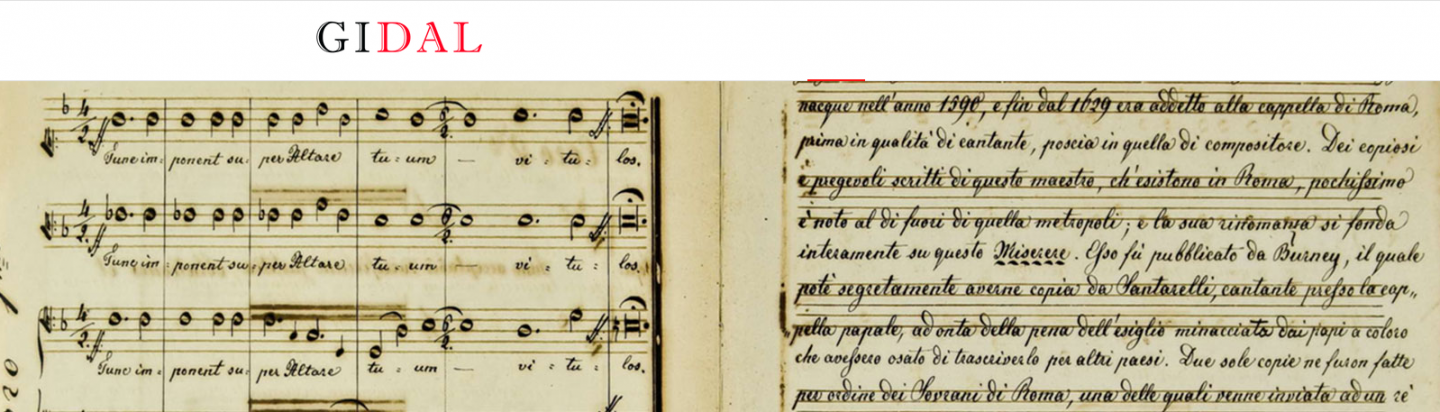 GIDAL
Tunc im- ponent su- per Altare tu- um — vi- tu- los.
Tunc im- ponent su- per Altare tu- um — vi- tu- los.
Tunc im- ponent su- per Altare tu- um — vi- tu- los.
nacque nell'anno 1590, e fin dal 1629 era addetto alla cappella di Roma,
prima in qualità di cantante, poscia in quella di compositore. Dei copiosi
e pregevoli scritti di questo maestro, ch'esistono in Roma, pochissimo
è noto al di fuori di quella metropoli; e la sua rinomanza si fonda
interamente su questo Miserere. Esso fù pubblicato da Burney, il quale
potè segretamente averne copia da Santarelli, cantante presso la cap„
„pella papale, ad onta della pena dell'esiglio minacciata dai papi a coloro
che avessero osato di trascriverlo per altri paesi. Due sole copie ne furon fatte
per ordine dei Sovrani di Roma, una delle quali venne inviata ad un rè